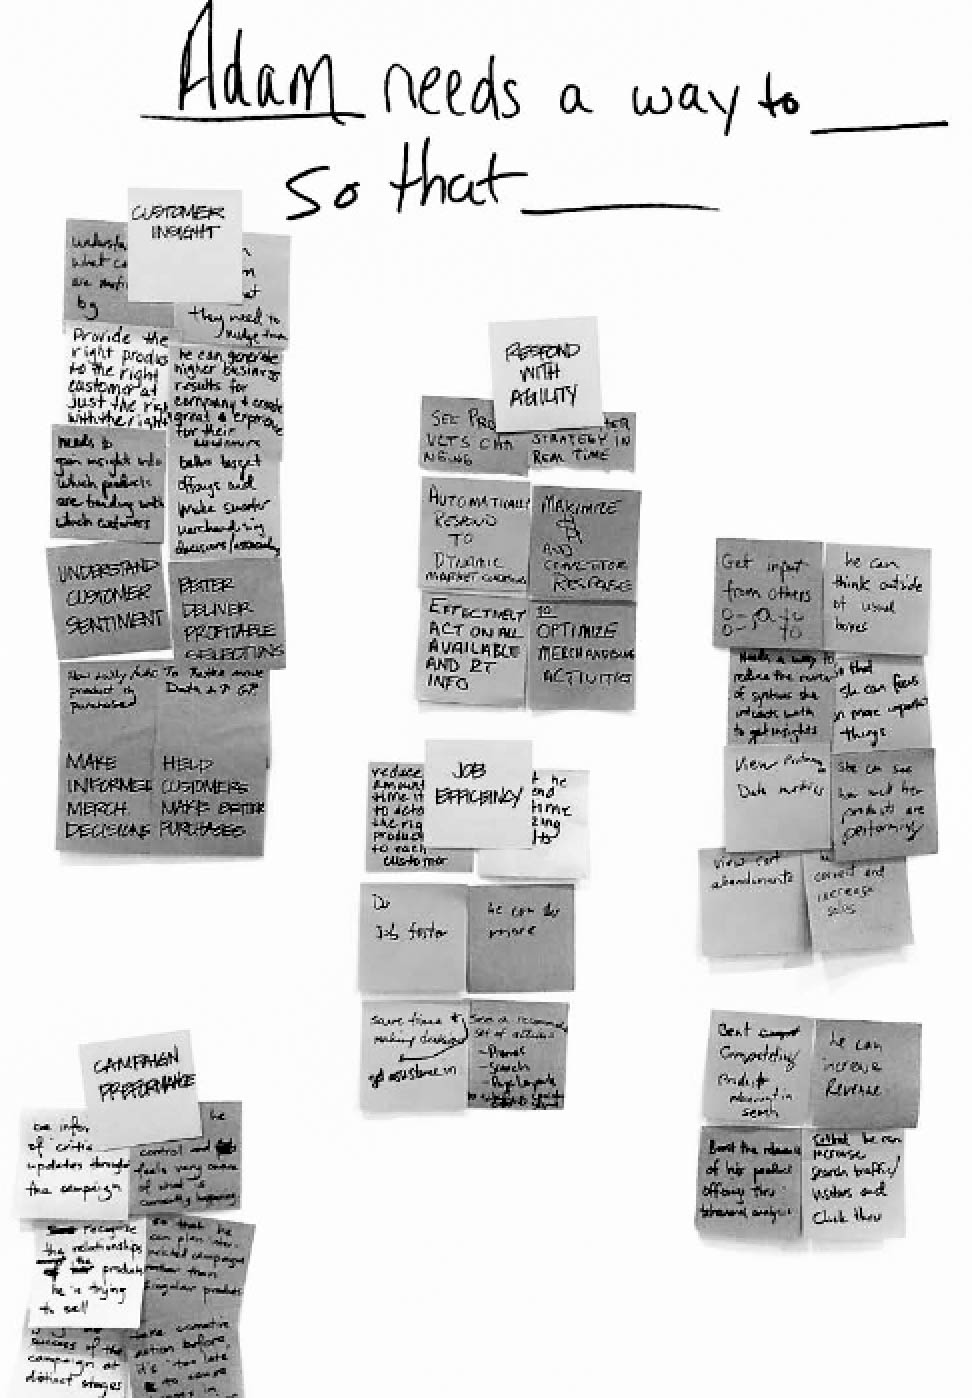 Adam needs a way to ____
so that ____
CUSTOMER
INSIGHT
what
are
by
they need to
nudge
Provide the
right produc
to the right
customer at
Just the rig
with the right
he can generate
higher business
results for
company & create
great experience
for their
customers
needs to
gain insights into
which products
are trending with
which customers
better target
offerings and
make smarter
merchandising
decisions
UNDERSTAND
CUSTOMER
SENTIMENT
BETTER
DELIVER
PROFITABLE
SELECTIONS
product is
purchased
To
Data
MAKE
INFORMED
MERCH.
DECISIONS
HELP
CUSTOMERS
MAKE BETTER
PURCHASES
RESPOND
WITH
AGILITY
SEE PRO
UCTS CHA
NGING
STRATEGY IN
REAL TIME
AUTOMATICALLY
RESPOND
TO
DYNAMIC
MARKET
MAXIMIZE
$
AND
COMPETITOR
RESPONSE
EFFECTIVELY
ACT ON ALL
AVAILABLE
AND RT
INFO
TO
OPTIMIZE
MERCHANDISING
ACTIVITIES
JOB
EFFICIENCY
reduce
amount
time it
to
the rig
product
to each
customer
he
Do
Job faster
he can do
more
Save time
making decisions
get assistance in
set of
- Promos
- Search
Get input
from others
he can
think outside
of usual
boxes
Needs a way to
reduce the
of systems she
interacts with
to get insights
so that
she can focus
on more important
things
View
Data metrics
She can see
how well her
products are
performing
View cart
abandonments
convert and
increase
sales
Beat
Competitors
Products
in
search
he can
increase
Revenue
Boost the relevance
of his product
offering thru
behavioral analysis
So that he can
increase
search traffic/
visitors and
Click thru
CAMPAIGN
PREFORMANCE
be infor
of critic
updates through
the campaign
he
control and
feels very aware
of what's
currently happening
recognize
the relationships
of the products
he is trying
to sell
so that he
can plan inter-
related campaigns
rather than
singular products
success of the
campaign at
distinct stages
take
action before
it's too late
to
in